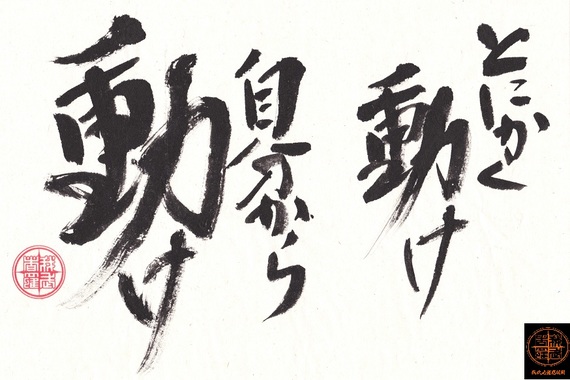 とにかく
動け
自分から
動け